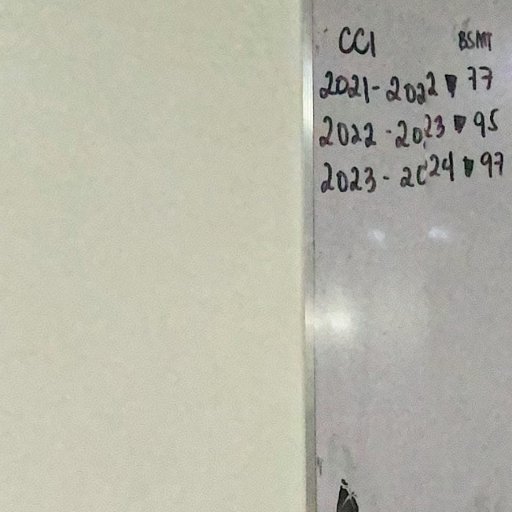 CCI BSMT
2021-2022 77
2022-2023 95
2023-2024 97